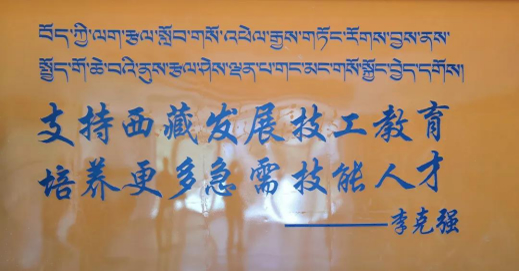 བོད་ཀྱི་ལག་རྩལ་སློབ་གསོ་འཕེལ་རྒྱས་གཏོང་རོགས་བྱས་ནས་
སྤྱོད་གོ་ཆེ་བའི་ནུས་རྩལ་ཤེས་ལྡན་པ་གང་མང་གསོ་སྐྱོང་བྱེད་དགོས།
支持西藏发展技工教育
培养更多急需技能人才
——李克强